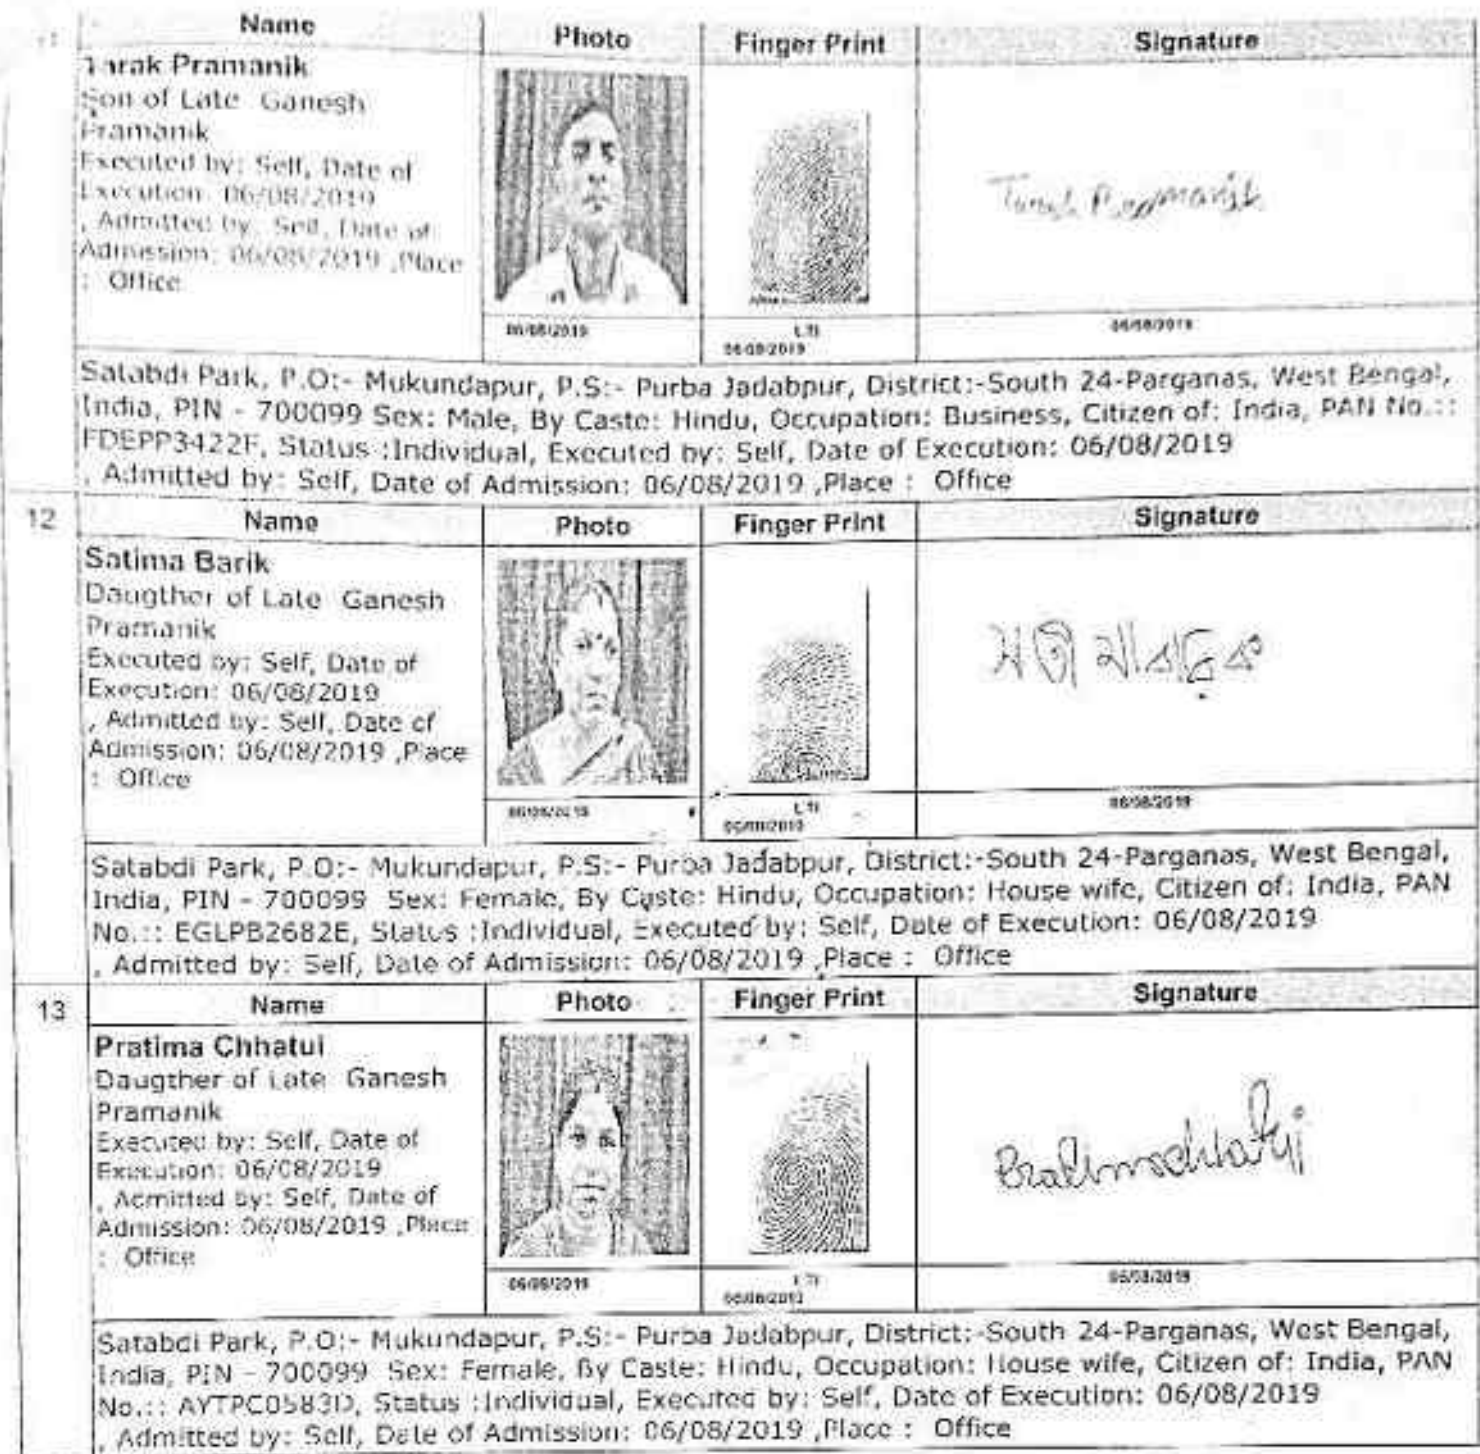 Name Photo Finger Print Signature
Tarak Pramanik
Son of Late Ganesh
Pramanik
Executed by: Self, Date of
Execution: 06/08/2019
, Admitted by: Self, Date of
Admission: 06/08/2019 ,Place
: Office
Tarak Pramanik
06/08/2019 LTI 06/08/2019
06/08/2019
Satabdi Park, P.O:- Mukundapur, P.S:- Purba Jadabpur, District:-South 24-Parganas, West Bengal,
India, PIN - 700099 Sex: Male, By Caste: Hindu, Occupation: Business, Citizen of: India, PAN No.::
FDEPP3422F, Status :Individual, Executed by: Self, Date of Execution: 06/08/2019
, Admitted by: Self, Date of Admission: 06/08/2019 ,Place : Office
12 Name Photo Finger Print Signature
Satima Barik
Daugther of Late Ganesh
Pramanik
Executed by: Self, Date of
Execution: 06/08/2019
, Admitted by: Self, Date of
Admission: 06/08/2019 ,Place
: Office
06/08/2019 LTI 06/08/2019
06/08/2019
Satabdi Park, P.O:- Mukundapur, P.S:- Purba Jadabpur, District:-South 24-Parganas, West Bengal,
India, PIN - 700099 Sex: Female, By Caste: Hindu, Occupation: House wife, Citizen of: India, PAN
No.:: EGLPB2682E, Status :Individual, Executed by: Self, Date of Execution: 06/08/2019
, Admitted by: Self, Date of Admission: 06/08/2019 ,Place : Office
13 Name Photo Finger Print Signature
Pratima Chhatui
Daugther of Late Ganesh
Pramanik
Executed by: Self, Date of
Execution: 06/08/2019
, Admitted by: Self, Date of
Admission: 06/08/2019 ,Place
: Office
06/08/2019 LTI 06/08/2019
06/08/2019
Satabdi Park, P.O:- Mukundapur, P.S:- Purba Jadabpur, District:-South 24-Parganas, West Bengal,
India, PIN - 700099 Sex: Female, By Caste: Hindu, Occupation: House wife, Citizen of: India, PAN
No.:: AYTPC0583D, Status :Individual, Executed by: Self, Date of Execution: 06/08/2019
, Admitted by: Self, Date of Admission: 06/08/2019 ,Place : Office